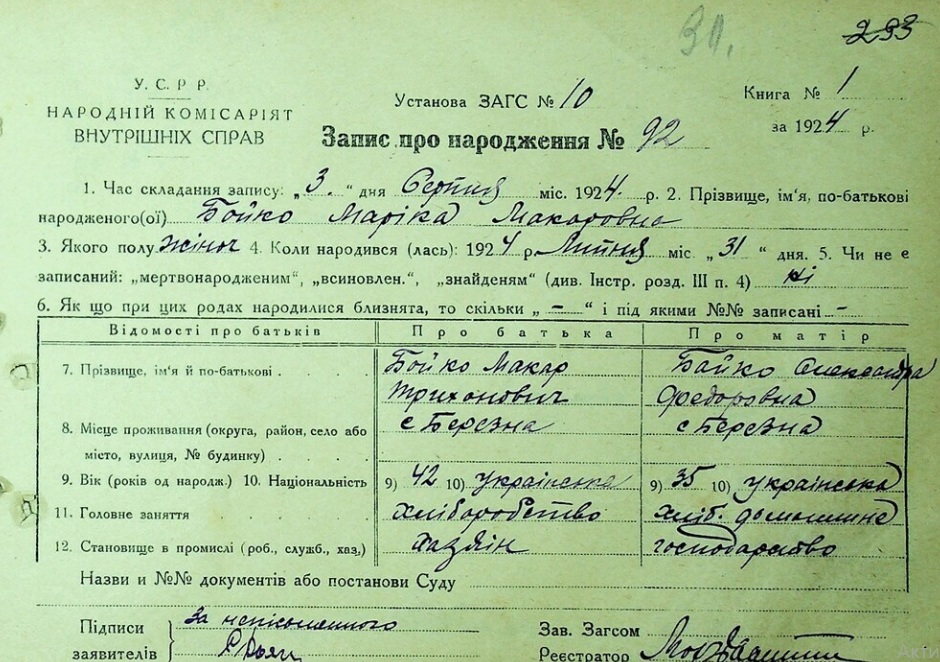 31. 293
У. С. Р. Р.
НАРОДНІЙ КОМІСАРІЯТ
ВНУТРІШНІХ СПРАВ
Установа ЗАГС № 10
Книга № 1
за 1924 р.
Запис про народження № 92
1. Час складання запису: „3.“ дня Серпня міс. 1924. р. 2. Прізвище, ім'я, по-батькові
народженого(ої) Бойко Маріка Макаровна
3. Якого полу жіноч 4. Коли народився (лась): 1924 р. Липня міс. „31“ дня. 5. Чи не є
записаний: „мертвонародженим“, „всиновлен.“, „знайденям“ (див. Інстр. розд. III п. 4) ні
6. Як що при цих родах народилися близнята, то скільки „ — “ і під якими №№ записані —
Відомості про батьків Про батька Про матір
7. Прізвище, ім'я й по-батькові Бойко Макар Бойко Олександра
Трихонович Федоровна
8. Місце проживання (округа, район, село або с Березна с Березна
місто, вулиця, № будинку)
9. Вік (років од народж.) 10. Національність 9) 42 10) українське 9) 35 10) українська
11. Головне заняття хліборобство хліб. домашнє
12. Становище в промислі (роб., служб., хаз.) хазяін господарство
Назви и №№ документів або постанови Суду
Підписи За неписьменного Зав. Загсом
заявителів Реєстратор
Акти